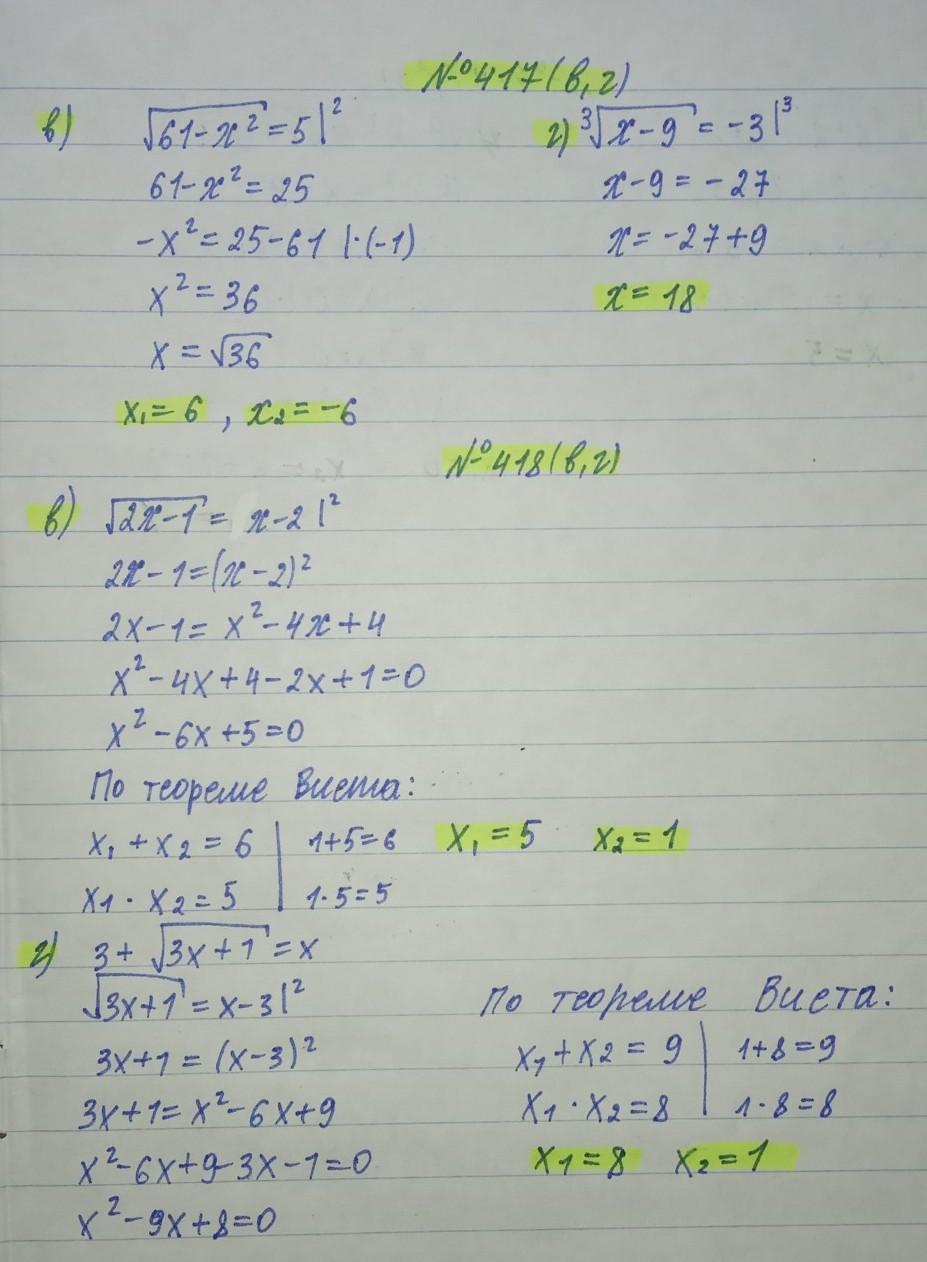 №417(в,г)
в) √61-x² = 5 |²
61-x² = 25
-x² = 25-61 |·(-1)
x² = 36
x = √36
x₁ = 6 , x₂ = -6
г) ³√x-9 = -3 |³
x-9 = -27
x = -27+9
x = 18
№418(в,г)
в) √2x-1 = x-2 |²
2x-1 = (x-2)²
2x-1 = x²-4x+4
x²-4x+4-2x+1=0
x²-6x+5=0
По теореме Виета:
x₁ + x₂ = 6 | 1+5=6 x₁ = 5 x₂ = 1
x₁ · x₂ = 5 | 1·5=5
г) 3+ √3x+1 = x
√3x+1 = x-3 |²
3x+1 = (x-3)²
3x+1 = x²-6x+9
x²-6x+9-3x-1=0
x²-9x+8=0
По теореме Виета:
x₁+x₂ = 9 | 1+8=9
x₁·x₂=8 | 1·8=8
x₁=8 x₂=1